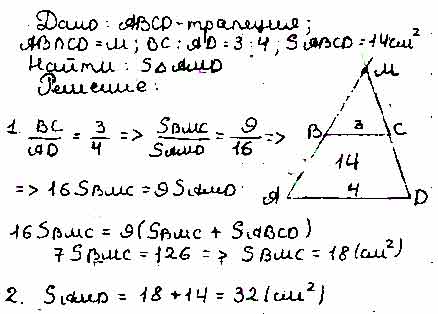 Дано: ABCD - трапеция;
AB∩CD = M; BC : AD = 3 : 4; SABCD = 14 см²
Найти: SΔAMD
Решение:
1. BC/AD = 3/4 => SBMC/SAMD = 9/16 =>
=> 16SBMC = 9SAMD
16SBMC = 9(SBMC + SABCD)
7SBMC = 126 => SBMC = 18 (см²)
2. SAMD = 18 + 14 = 32 (см²)
M
B 3 C
14
A 4 D